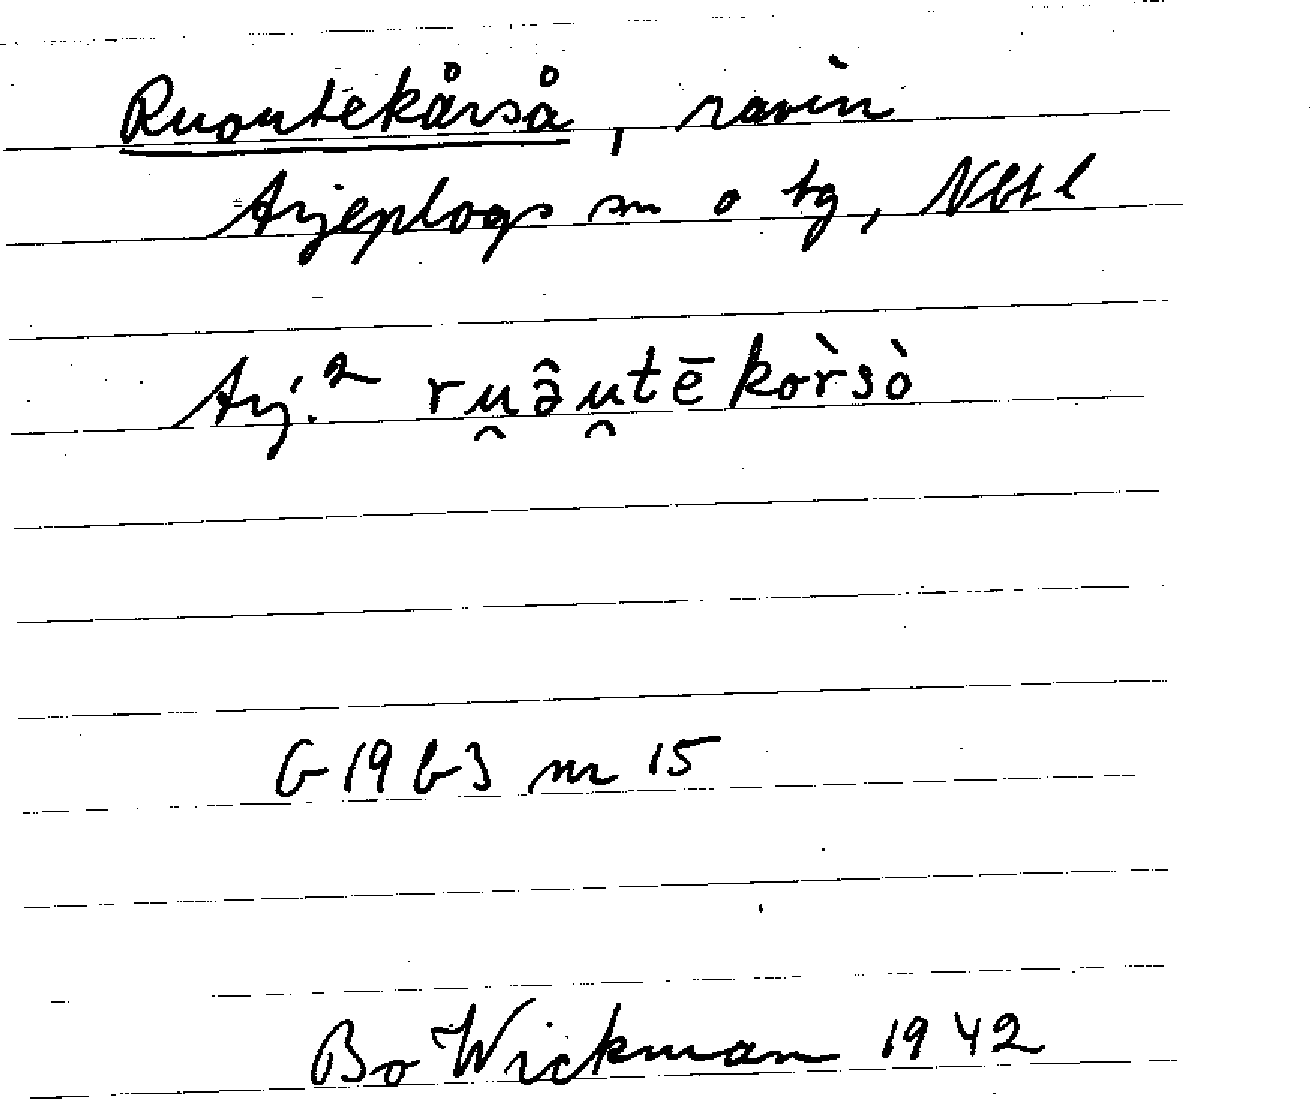 Ruoutekårså, ravin
Arjeplogs sn o tg, Nbt l
Arj.² ru̯ə̑u̯tēkòr̀sò
G 19 b 3 nr 15
Bo Wickman 1942